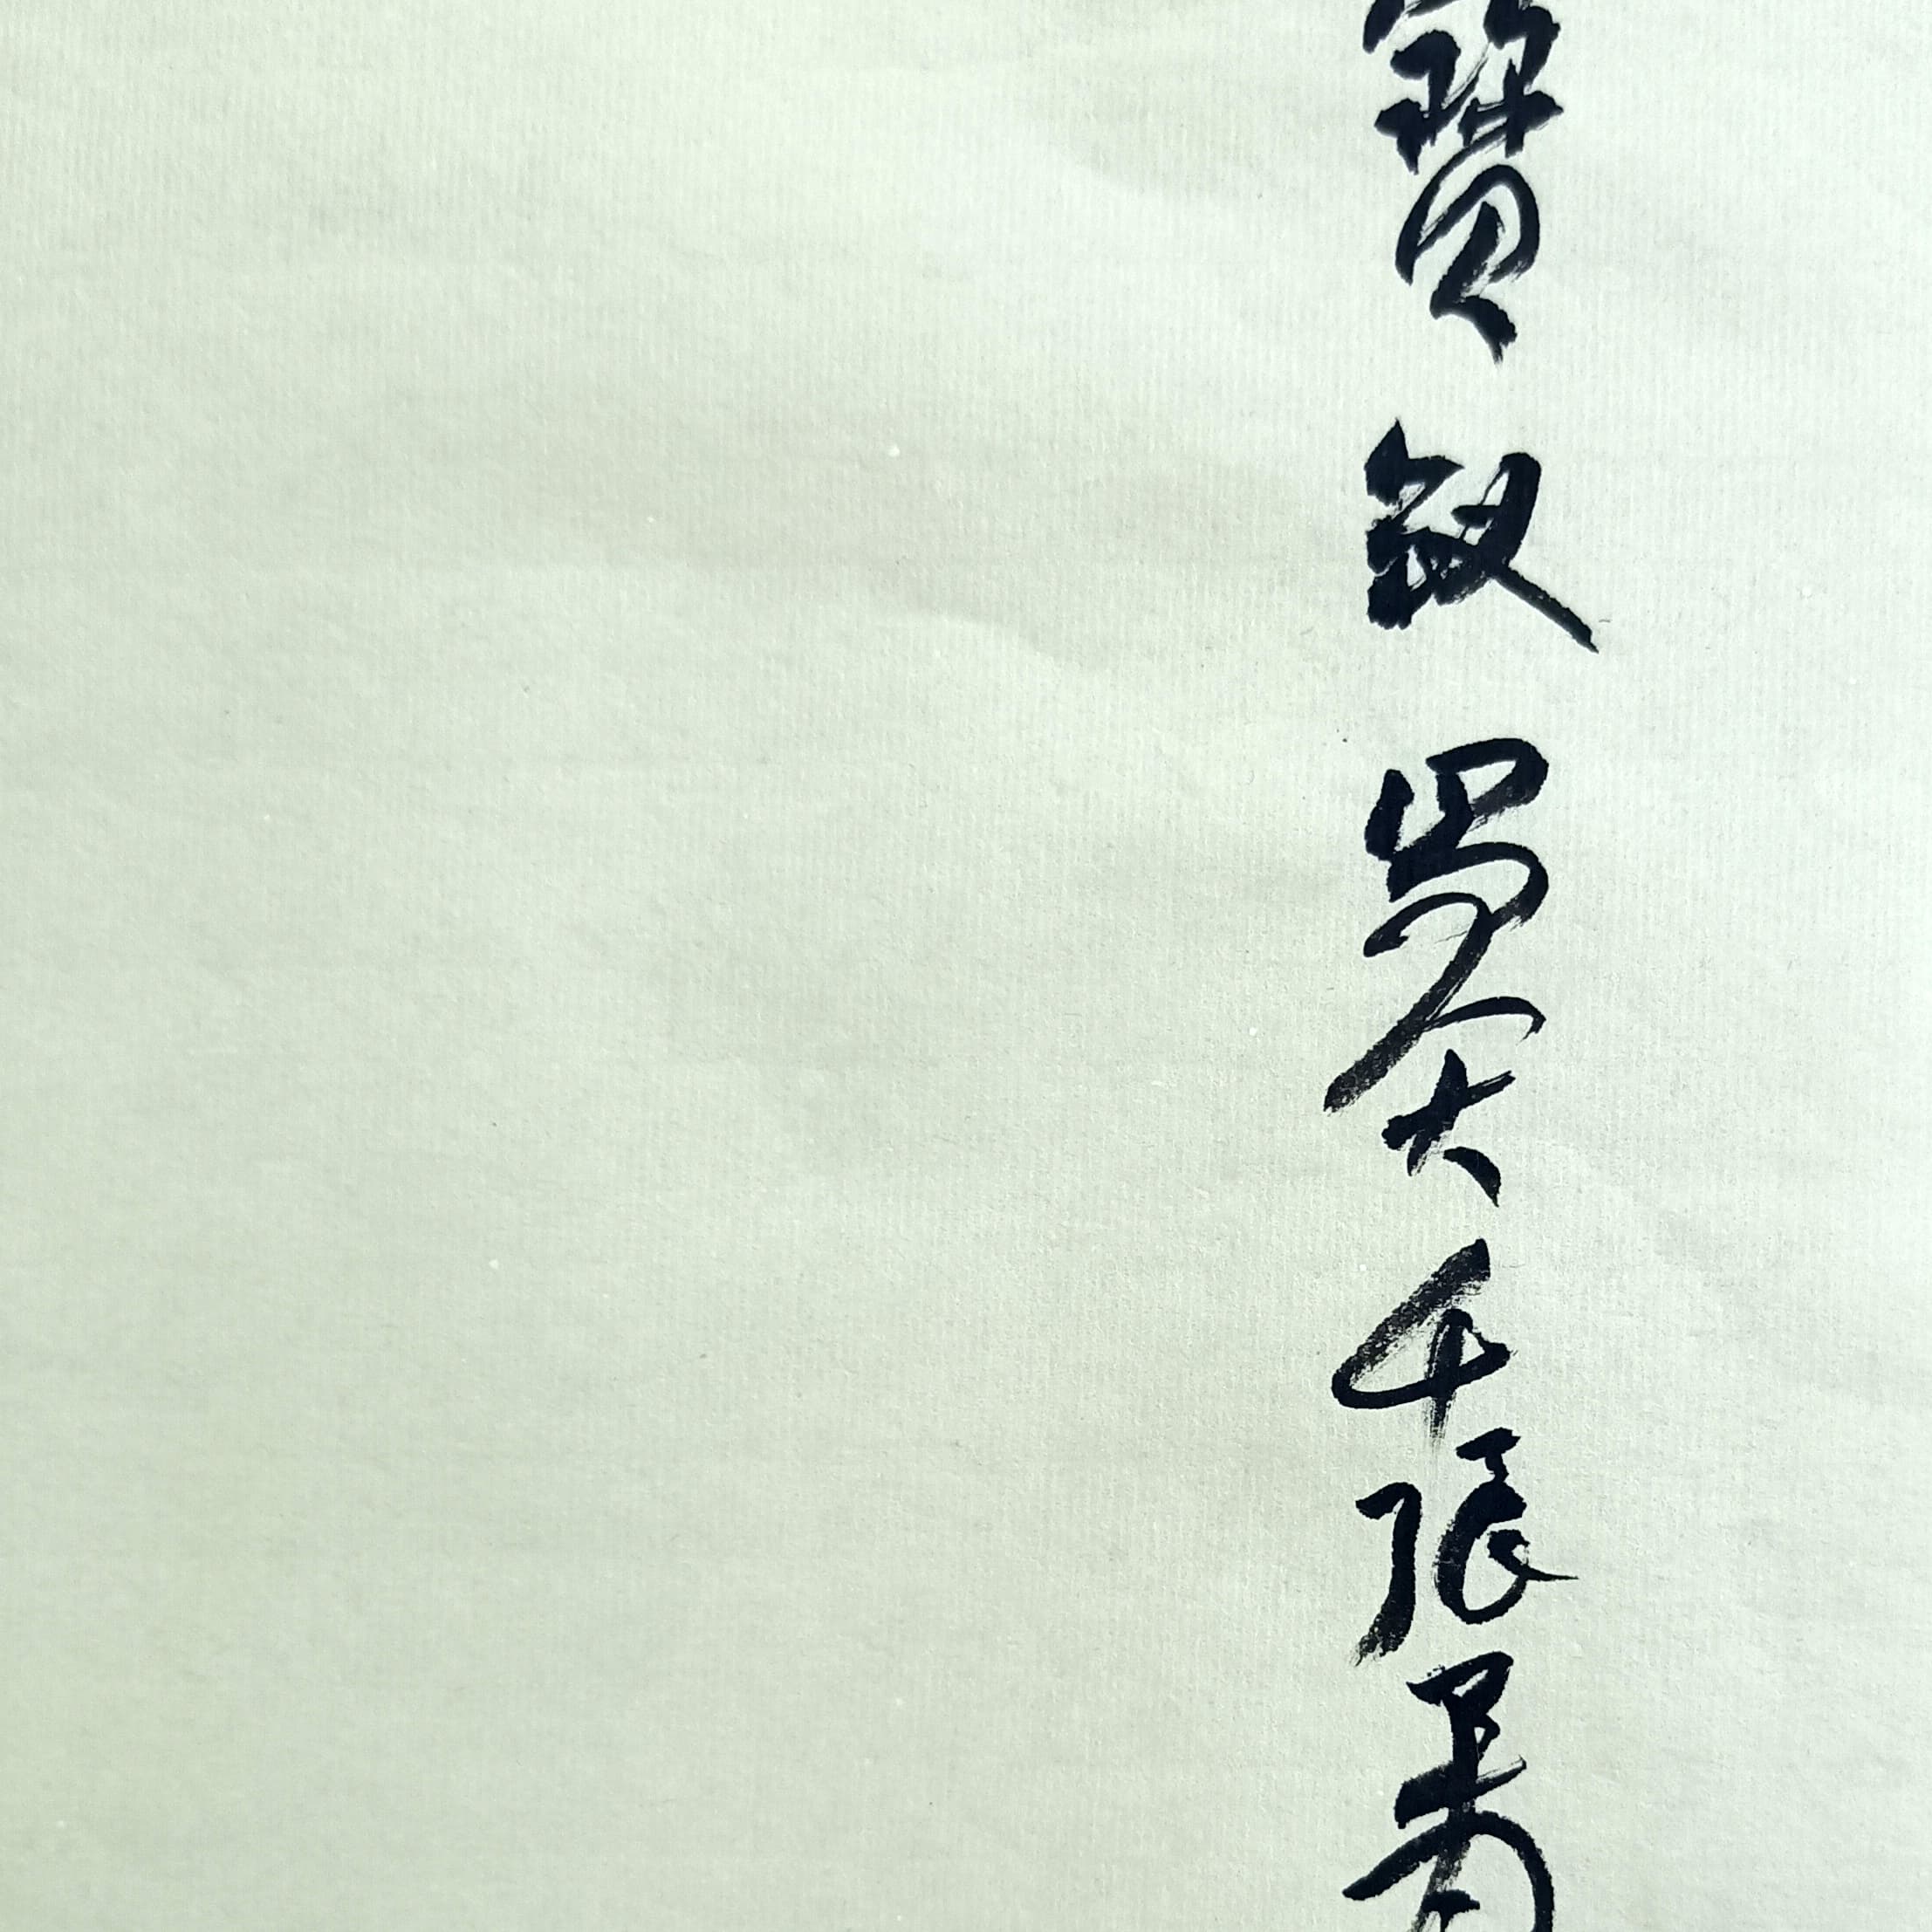 寶釵蜀人大千張爰